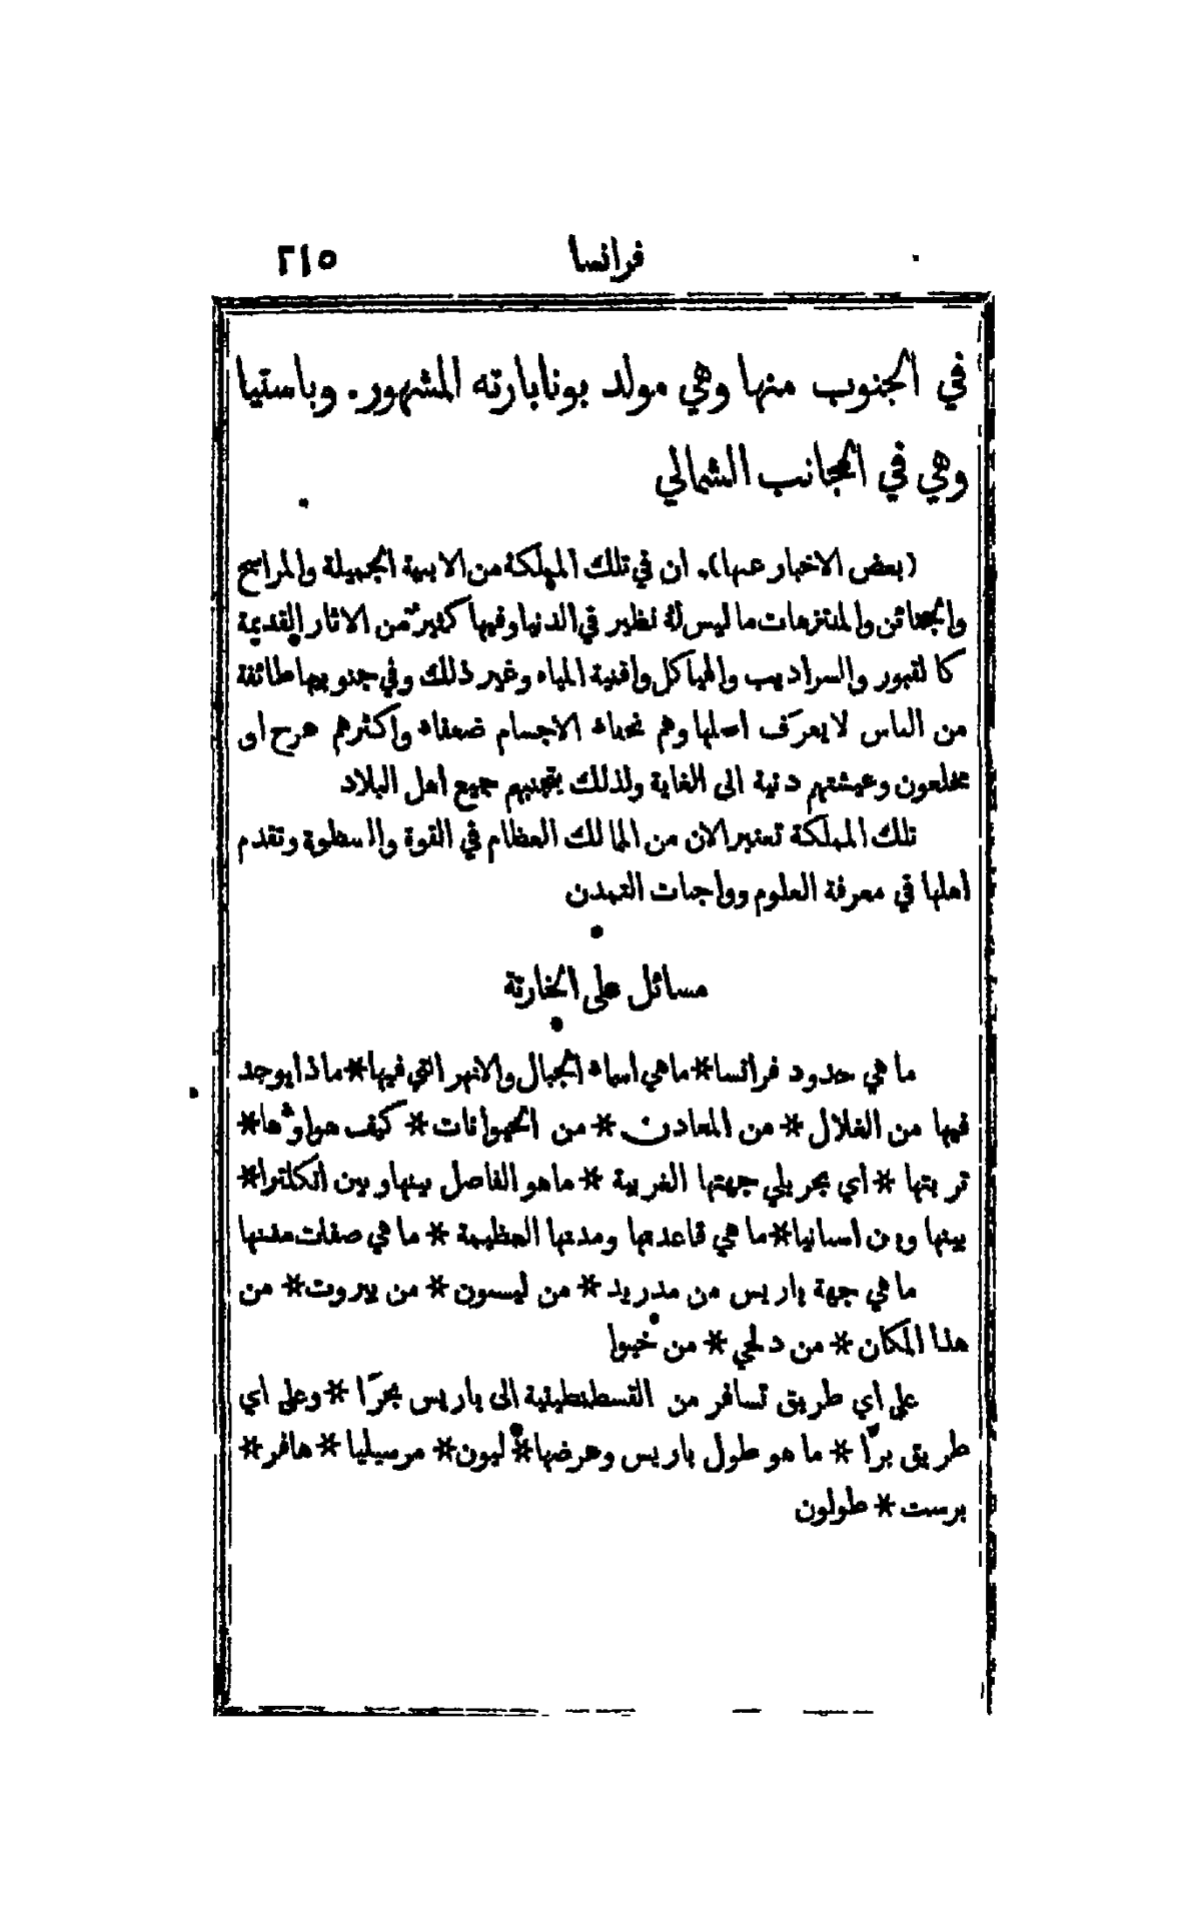 فرانسا ٢١٥
في الجنوب منها وهي مولد بونابارته المشهور. وباستيا
وهي في الجانب الشمالي
(بعض الاخبار عنها). ان في تلك المملكة من الابنية الجميلة والمراسح
والجنائن والمنتزهات ما ليس لهُ نظير في الدنيا وفيها كثيرٌ من الاثار القديمة
كالقبور والسراديب والهياكل واقنية المياه وغير ذلك وفي جنوبيها طائفة
من الناس لا يعرَف اصلها وهم نحفاء الاجسام ضعفاء واكثرهم عرج او
مخلعون وعيشتهم دنية الى الغاية ولذلك يتجنبهم جميع اهل البلاد
تلك المملكة تعتبر الان من الممالك العظام في القوة والسطوة وتقدم
اهلها في معرفة العلوم وواجبات التمدن
مسائل على الخارتة
ما هي حدود فرانسا * ما هي اسماء الجبال والانهر التي فيها * ماذا يوجد
فيها من الغلال * من المعادن * من الحيوانات * كيف هواوُها *
تربتها * اي بحر يلي جهتها الغربية * ما هو الفاصل بينها وبين انكلترا *
بينها وبين اسبانيا * ما هي قاعدتها ومدنها العظيمة * ما هي صفات مدنها
ما هي جهة باريس من مدريد * من ليسبون * من بيروت * من
هذا المكان * من دلحي * من خيوا
على اي طريق تسافر من القسطنطينية الى باريس بحرًا * وعلى اي
طريق برًّا * ما هو طول باريس وعرضها * ليون * مرسيليا * هافر *
برست * طولون